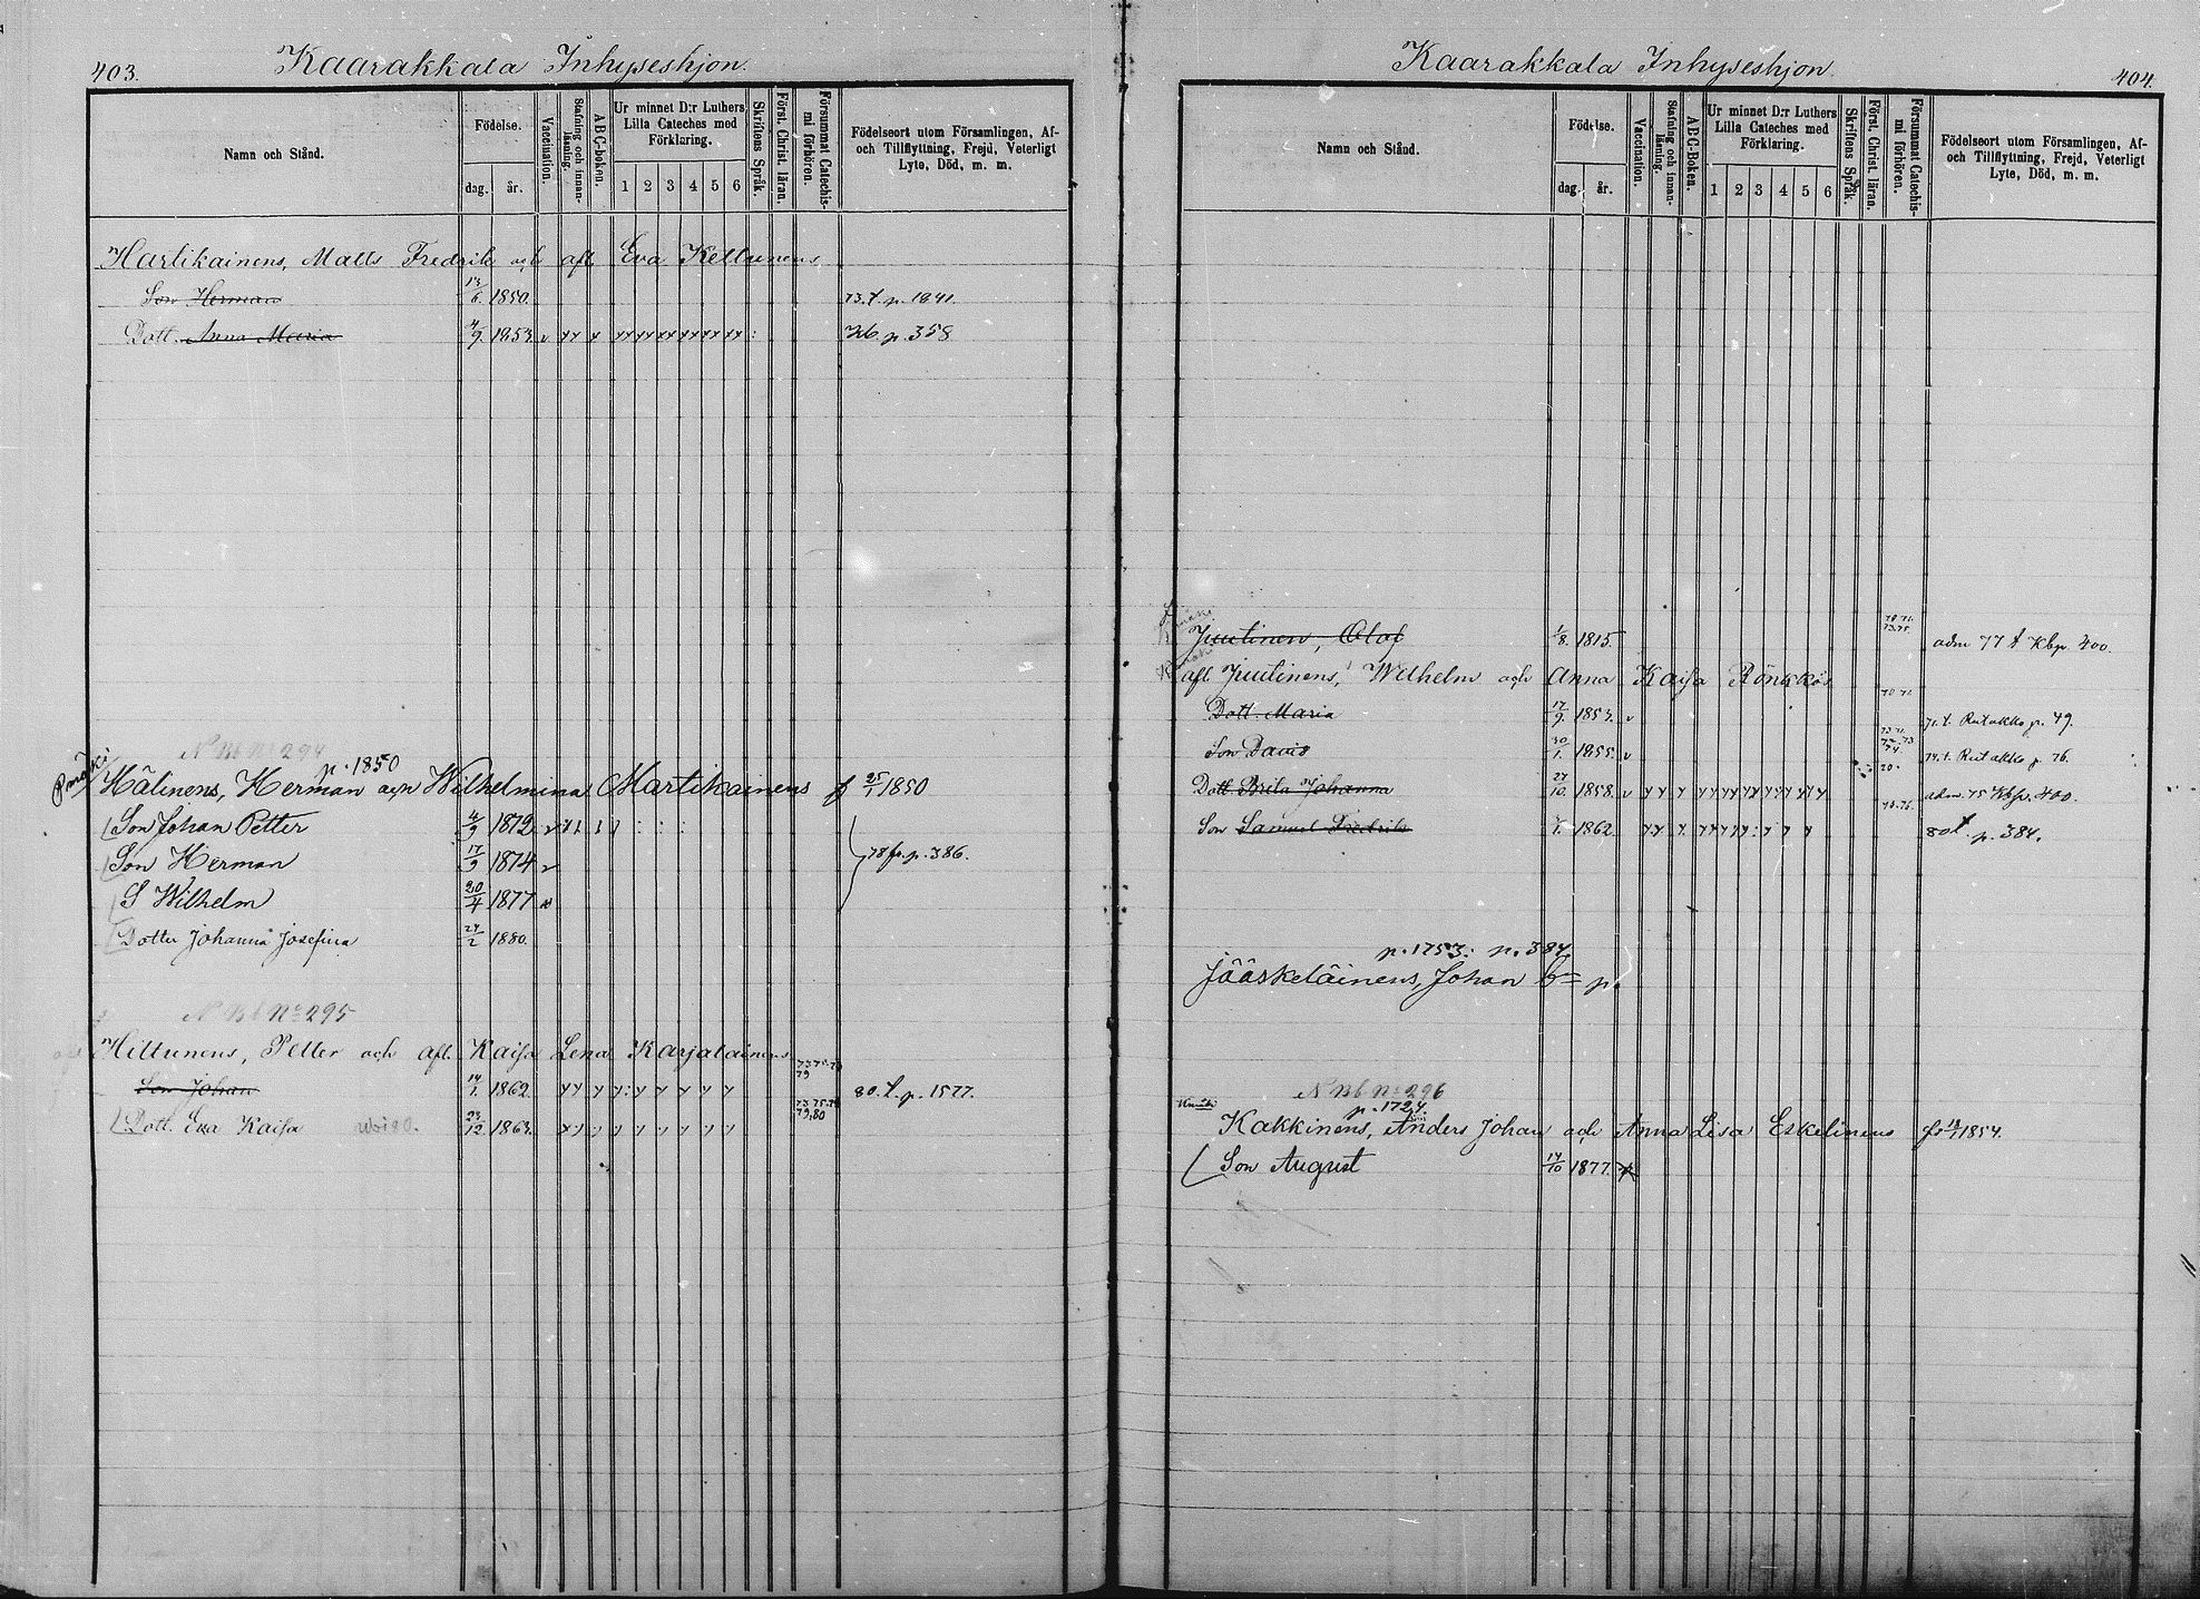 403.
Kaarakkala Inhyseshjon.
Namn och Stånd.
Födelse.
dag. år.
Vaccination.
Stafning och innan-läsning.
ABC-boken.
Ur minnet D:r Luthers Lilla Cateches med Förklaring.
1 2 3 4 5 6
Skriftens Språk.
Först. Christ. läran.
Försummat Catechis-mi förhören.
Födelseort utom Församlingen, Af- och Tillflyttning, Frejd, Veterligt Lyte, Död, m. m.
Hartikainens, Matts Fredrik och afl. Eva Kettunens
Son Herman 13/6. 1850. 73. t. p. 1841.
Dott. Anna Maria 4/9. 1853. Kb. p. 358
N Bb No 294
p. 1850
Hälinens, Herman och Wilhelmina Martikainens f 25/1 1850
Son Johan Petter 4/9 1872
Son Herman 17/9 1874 78 fr. p. 386.
S Wilhelm 20/4 1877
Dotter Johanna Josefina 24/2 1880.
N Bb No 295
Hiltunens, Petter och afl. Kaisa Lena Karjalainens
Son Johan 14/1. 1862. 80. t. p. 1577.
Dott. Eva Kaisa 23/12 1863. 79,80
404.
Kaarakkala Inhyseshjon
Namn och Stånd.
Födelse.
dag. år.
Vaccination.
Stafning och innan-läsning.
ABC-Boken.
Ur minnet D:r Luthers Lilla Cateches med Förklaring.
1 2 3 4 5 6
Skriftens Språk.
Först. Christ. läran.
Försummat Catechis-mi förhören.
Födelseort utom Församlingen, Af- och Tillflyttning, Frejd, Veterligt Lyte, Död, m. m.
Juutinen, Olof 1/8. 1815. adm 77 t Kbp. 400.
afl. Juutinens, Wilhelm och Anna Kaisa Rönkkös
Dott. Maria 17/9. 1853. 71. t. Rutakko p. 49.
Son David 30/1. 1855. 74. t. Rutakko p. 76.
Dott. Brita Johanna 27/10. 1858. adm. 75 Kbp. 400.
Son Samuel Fredrik 1862. 80 t. p. 384.
p. 1753: p. 384
Jääskeläinens, Johan p.
N Bb No 296
p. 1724.
Kakkinens, Anders Johan och Anna Lisa Eskelinens 1854.
Son August 14/10 1877.